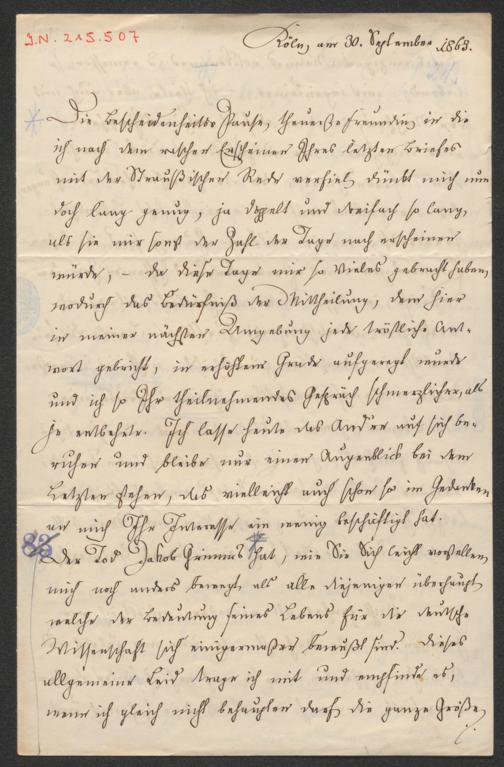 I.N. 215.507
Köln, am 30. September 1863.
Die Bescheidenheits-Pause, theuerste Freundin, in die
ich nach dem raschen Erscheinen Ihres letzten Briefes
mit der Straußischen Rede verfiel, dünkt mich nun
doch lang genug, ja doppelt und dreifach so lang,
als sie mir sonst der Zahl der Tage nach erscheinen
würde, – da diese Tage mir so Vieles gebracht haben,
wodurch das Bedürfniß der Mittheilung, dem hier
in meiner nächsten Umgebung jede tröstliche Ant-
wort gebricht, in erhöhtem Grade aufgeregt wurde
und ich so Ihr theilnehmendes Gespräch schmerzlicher, als
je entbehrte. Ich lasse heute das And're auf sich be-
ruhen und bleibe nur einen Augenblick bei dem
Letzten stehen, das vielleicht auch schon so im Gedanken
an mich Ihr Interesse ein wenig beschäftigt hat.
83 Der Tod Jakob Grimms hat, wie Sie Sich leicht vorstellen,
mich noch anders bewegt, als alle diejenigen überhaupt,
welche der Bedeutung seines Lebens für die deutsche
Wissenschaft sich einigermaßen bewußt sind. Dieses
allgemeine Leid trage ich mit und empfinde es,
wenn ich gleich nicht behaupten darf, die ganze Größe